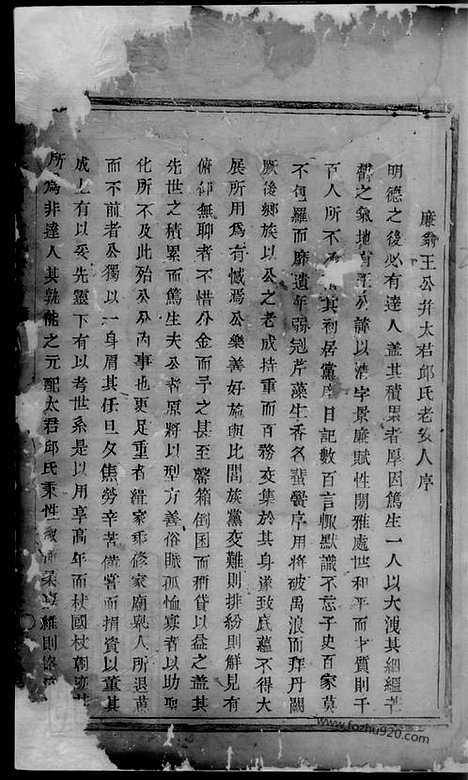 廉翁王公井太君邱氏老安人序
明德之後必有達人盖其積累者厚因篤生一人以大洩其絪縕
之氣地有王公諱以清字景廉賦性閒雅處世和平而才質則千
百人所不 其利居黨庠日記數百言輒默識不忘子史百家莫
不包羅而廉遺年弱冠芹藻生香名蜚黌序用將破禹浪而拜丹闕
厥後鄉族以公之老成持重而百務交集於其身遂致底蘊不得大
展所用為有憾焉公樂善好施與比閭族黨交難則排紛則解見有
俯仰無聊者不惜分金而予之甚至罄箱倒囷而稱貸以益之盖其
先世之積累而篤生夫公者原將以型方善俗賑孤恤寡者以助聖
化所不及此殆公分內事也更足重者緝家乘修家廟眾人所退
而不前者公獨以一身肩其任旦夕焦勞辛苦備嘗而捐資以董其
成上有以妥先靈下有以考世系是以用享高年而杖國杖朝
所為非達人其孰能之元配太君邱氏秉性 則
www.fozhu920.com